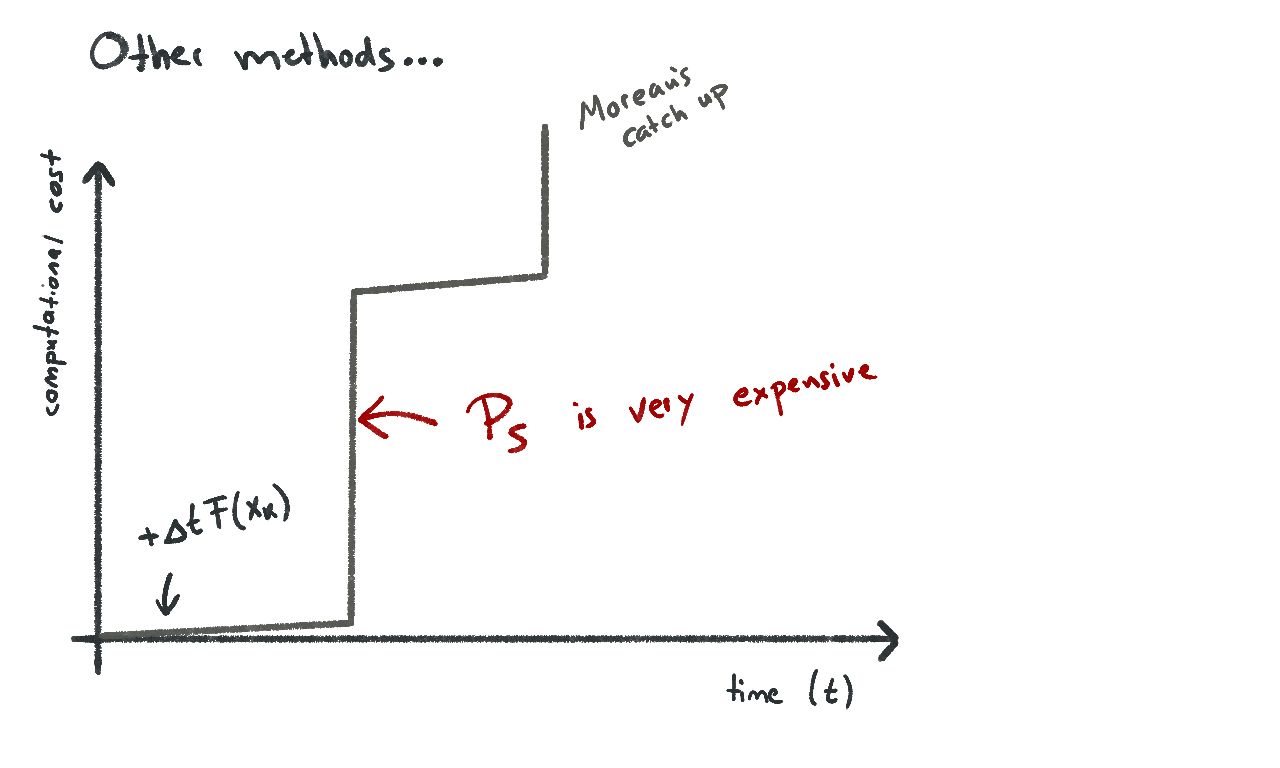 Other methods...
Moreau's
catch up
computational cost
P_S is very expensive
+ΔtF(x_k)
time (t)